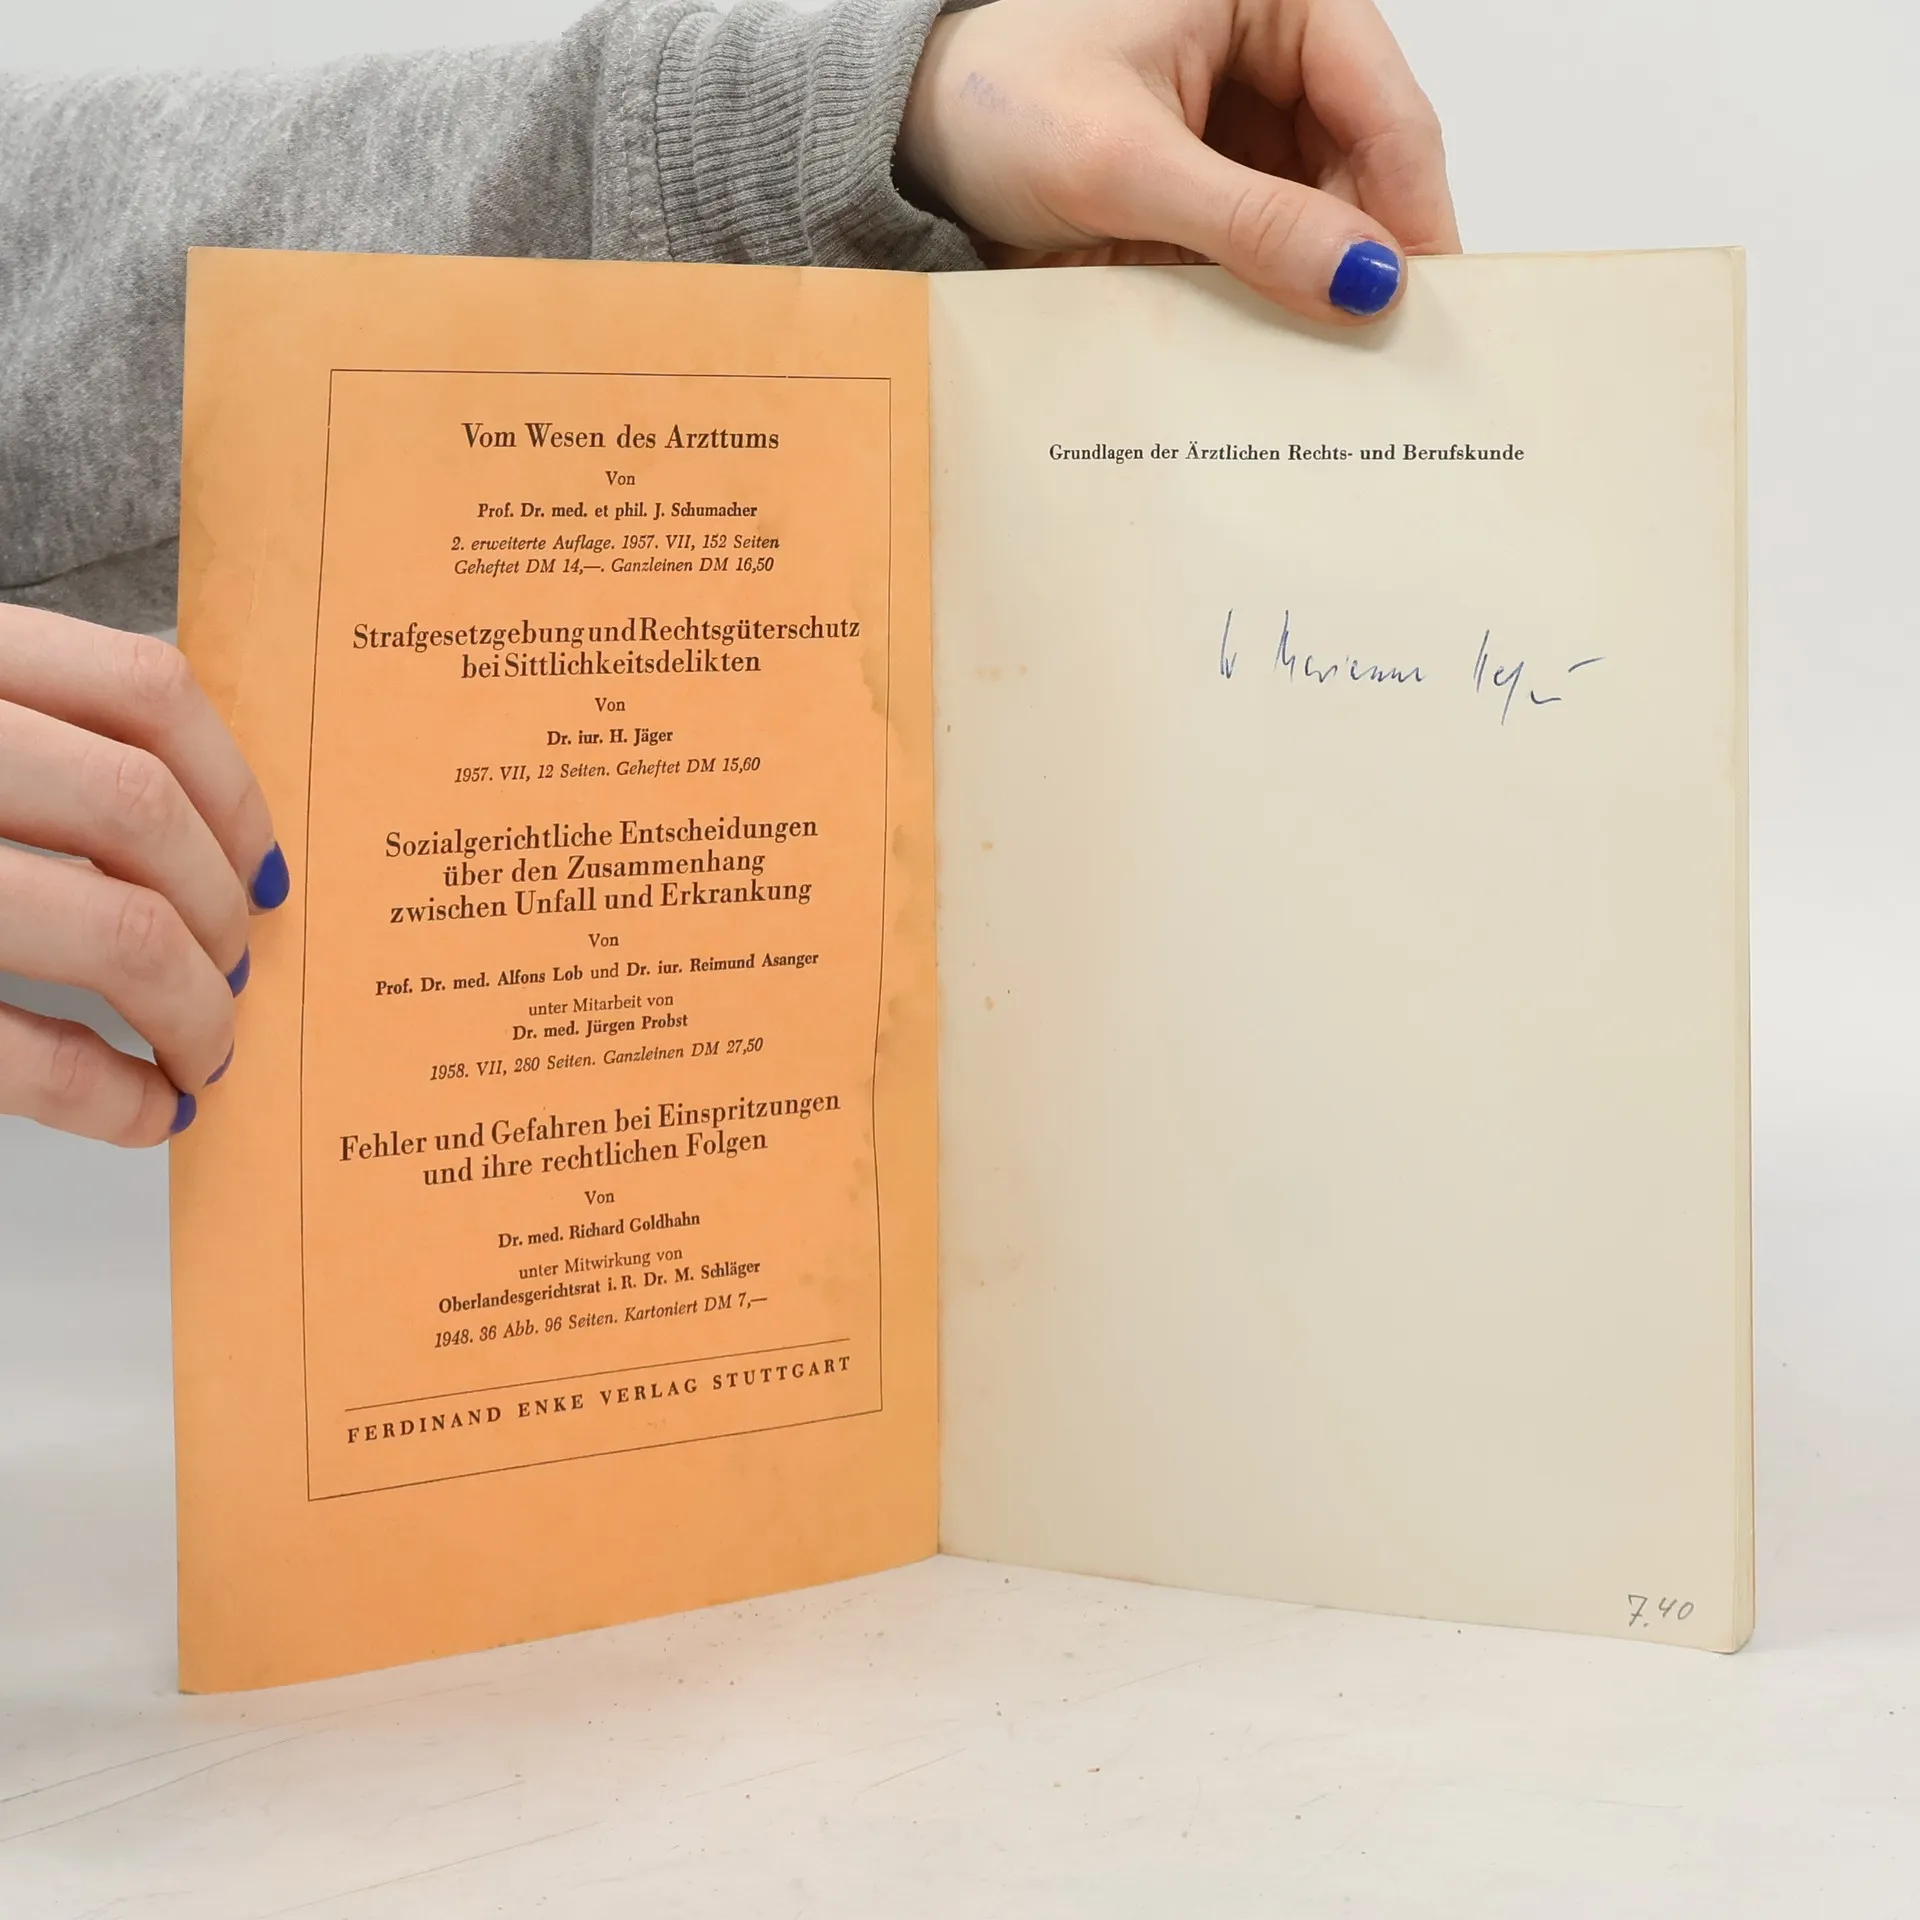 Vom Wesen des Arzttums
Von
Prof. Dr. med. et phil. J. Schumacher
2. erweiterte Auflage. 1957. VII, 152 Seiten
Geheftet DM 14,—. Ganzleinen DM 16,50
Strafgesetzgebung und Rechtsgüterschutz
bei Sittlichkeitsdelikten
Von
Dr. iur. H. Jäger
1957. VII, 12 Seiten. Geheftet DM 15,60
Sozialgerichtliche Entscheidungen
über den Zusammenhang
zwischen Unfall und Erkrankung
Von
Prof. Dr. med. Alfons Lob und Dr. iur. Reimund Asanger
unter Mitarbeit von
Dr. med. Jürgen Probst
1958. VII, 280 Seiten. Ganzleinen DM 27,50
Fehler und Gefahren bei Einspritzungen
und ihre rechtlichen Folgen
Von
Dr. med. Richard Goldhahn
unter Mitwirkung von
Oberlandesgerichtsrat i. R. Dr. M. Schläger
1948. 36 Abb. 96 Seiten. Kartoniert DM 7,—
FERDINAND ENKE VERLAG STUTTGART
Grundlagen der Ärztlichen Rechts- und Berufskunde
Marianne
7.40